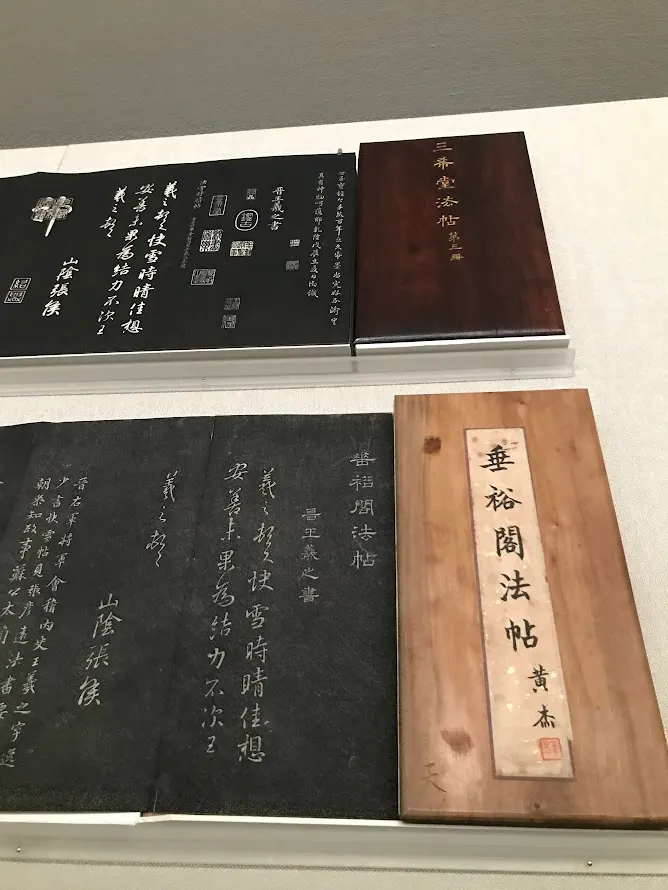 三希堂法帖 第三冊
晉王羲之書
快雪時晴帖
羲之頓首快雪時晴佳想
安善未果為結力不次王
羲之頓首
山陰張侯
垂裕閣法帖 黃杰
天
垂裕閣法帖
晉王羲之書
羲之頓首快雪時晴佳想
安善未果為結力不次王
羲之頓首
山陰張侯
晉右軍將軍會稽內史王羲之字逸
少書快雪帖見張彥遠法書要
朝參知政事蘇公太簡